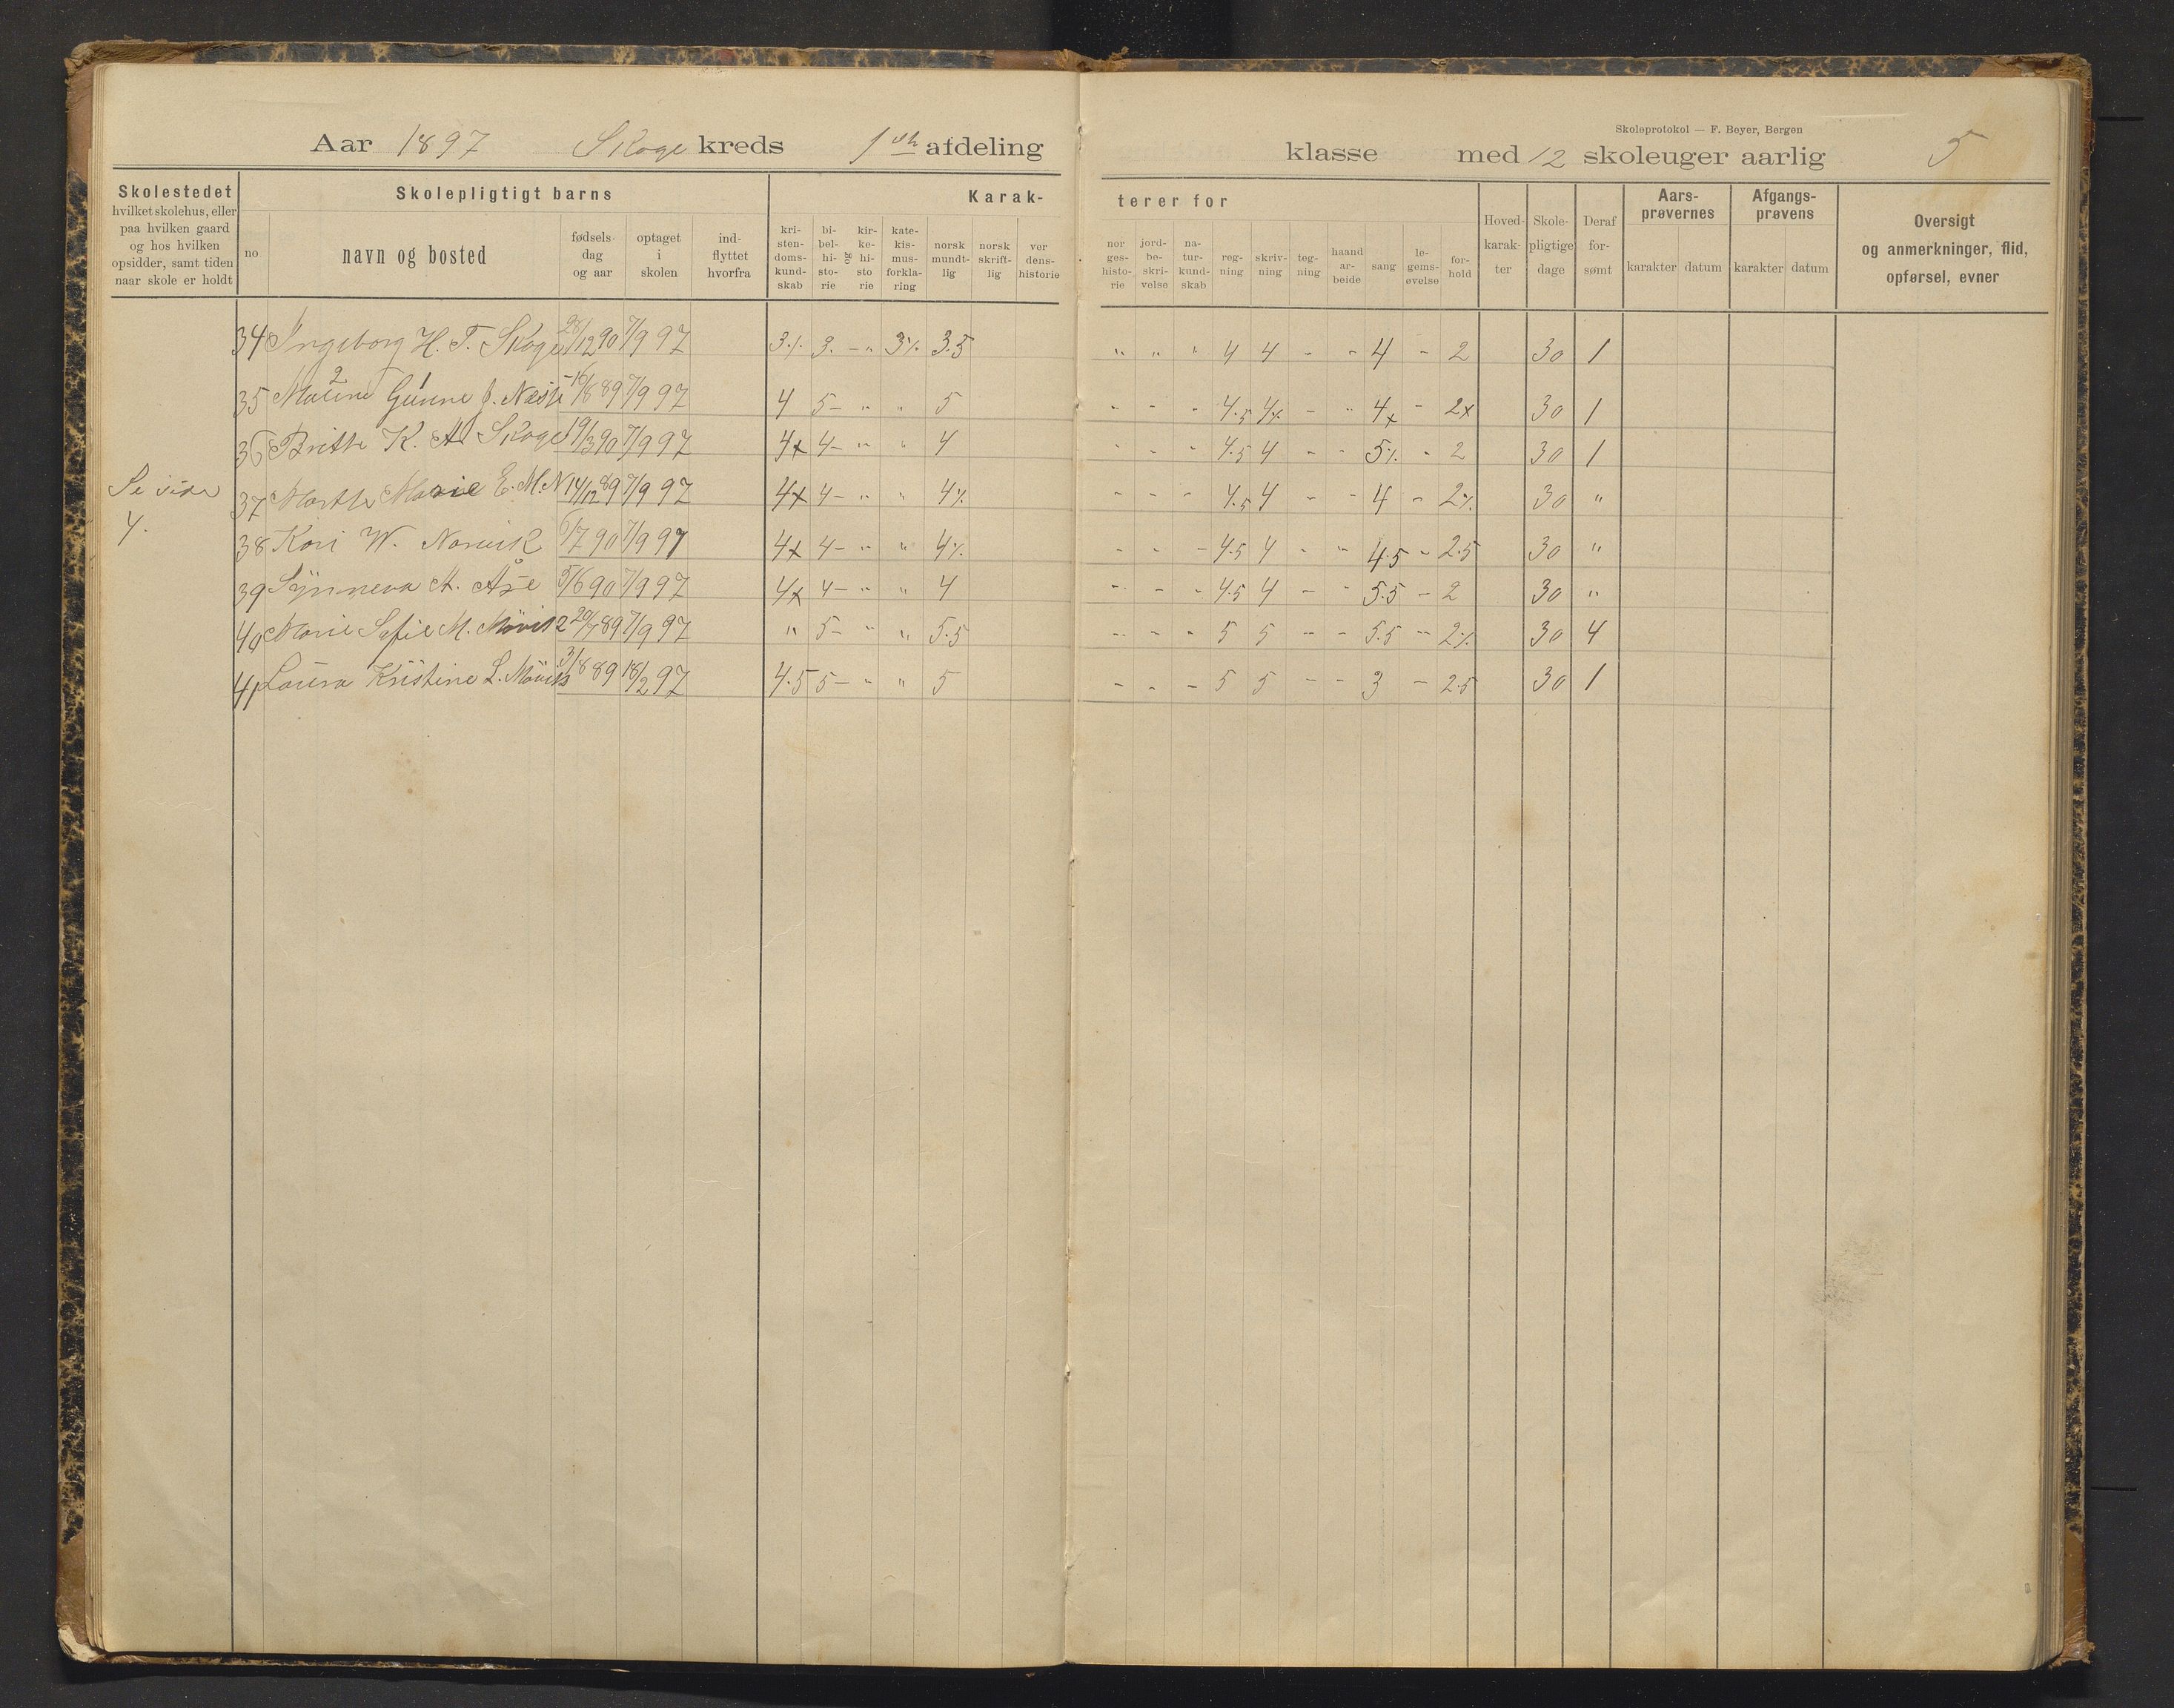 Skoleprotokol — F. Beyer, Bergen
Aar 1897 Skoge kreds 1ste afdeling klasse med 12 skoleuger aarlig 5
Skolestedet hvilket skolehus, eller paa hvilken gaard og hos hvilken opsidder, samt tiden naar skole er holdt
Skolepligtigt barns
no
navn og bosted
fødsels-dag og aar
optaget i skolen
ind-flyttet hvorfra
Karak-terer for
kri-sten-doms-kund-skab
bi-bel-hi-sto-rie
og
kir-ke-hi-sto rie
kate-kis-mus-forkla-ring
norsk mundt-lig
norsk skrift-lig
ver dens-historie
nor ges-histo-rie
jord-be-skri-velse
na-tur-kund-skab
reg-ning
skriv-ning
teg-ning
haand ar-beide
sang
le-gems-øvelse
for-hold
Hoved-karak-ter
Skole-pligtige dage
Deraf for-sømt
Aars-prøvernes
karakter datum
Afgangs-prøvens
karakter datum
Oversigt og anmerkninger, flid, opførsel, evner
34 Ingeborg H. T. Skoge 28/12 90 7/9 97 3% 3. - " 3% 3.5 " " " 4 4 - - 4 - 2 30 1
35 Gunne J. 16/8 89 7/9 97 4 5 - " " 5 - - - 4.5 4x - " 4x - 2x 30 1
36 Britte K. A. Skoge 19/3 90 7/9 97 4x 4 - " " 4 - - - 4.5 4 - - 5% - 2 30 1
Se side
4.
37 Marthe Marie E. M. N 14/12 89 7/9 97 4x 4 - " " 4% - - - 4.5 4 - - 4 - 2% 30 "
38 Kari W. Norvik 6/7 90 7/9 97 4x 4 - " " 4% - - - 4.5 4 - - 4.5 - 2.5 30 "
39 Synneva A. Åse 5/6 90 7/9 97 4x 4 - " " 4 - - - 4.5 4 - - 5.5 - 2 30 "
40 Marie Sofie M. Mövik 2 20/7 89 7/9 97 " 5 - " " 5.5 - - - 5 5 - - 5.5 - 2% 30 4
41 Laura Kristine L. Mövik 3/8 89 18/2 97 4.5 5 - " " 5 - - - 5 5 - - 3 - 2.5 30 1